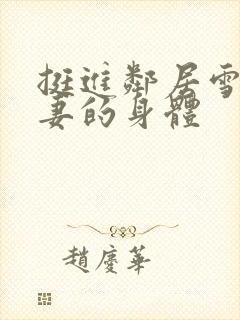 挺進鄰居雪
妻的身體
趙慶華